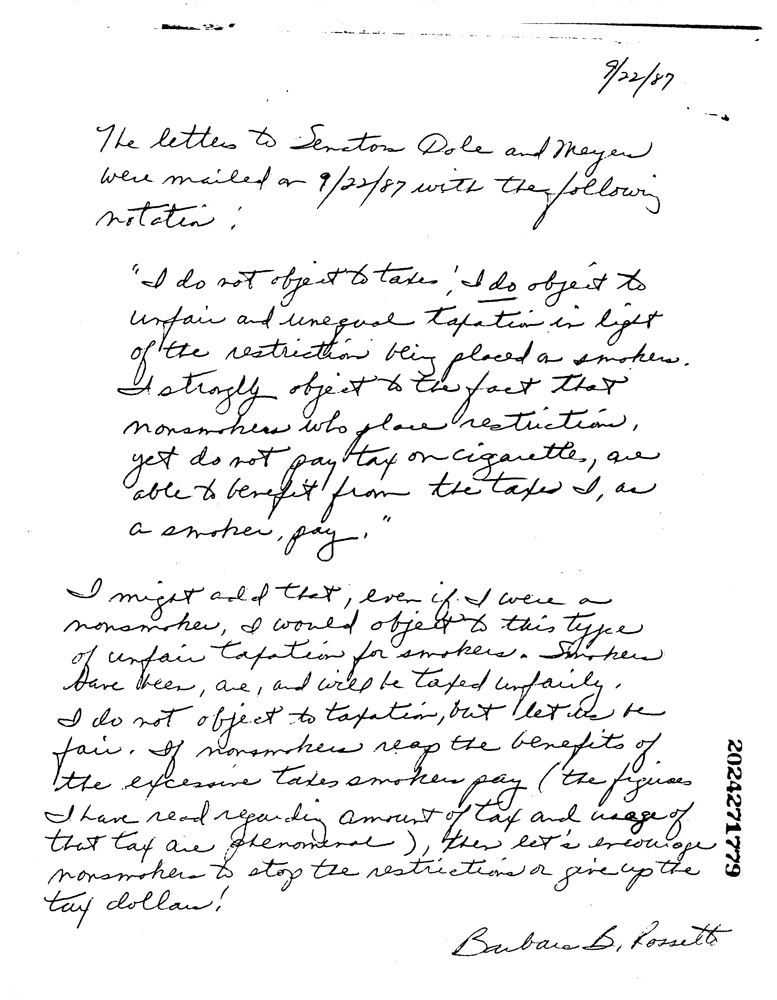 9/22/87
The letters to Senators Dole and Meyer
were mailed on 9/22/87 with the following
notation:
"I do not object to taxes! I do object to
unfair and unequal taxation in light
of the restriction being placed on smokers.
I strongly object to the fact that
nonsmokers who place restriction,
yet do not pay tax on cigarettes, are
able to benefit from the taxes I, as
a smoker, pay."
I might add that, even if I were a
nonsmoker, I would object to this type
of unfair taxation for smokers. Smokers
have been, are, and will be taxed unfairly.
I do not object to taxation, but let us be
fair. If nonsmokers reap the benefits of
the excessive taxes smokers pay (the figures
I have read regarding amount of tax and usage of
that tax are phenomenal), then let's encourage
nonsmokers to stop the restrictions or give up the
tax dollars!
Barbara B. Rossetti
2024271779